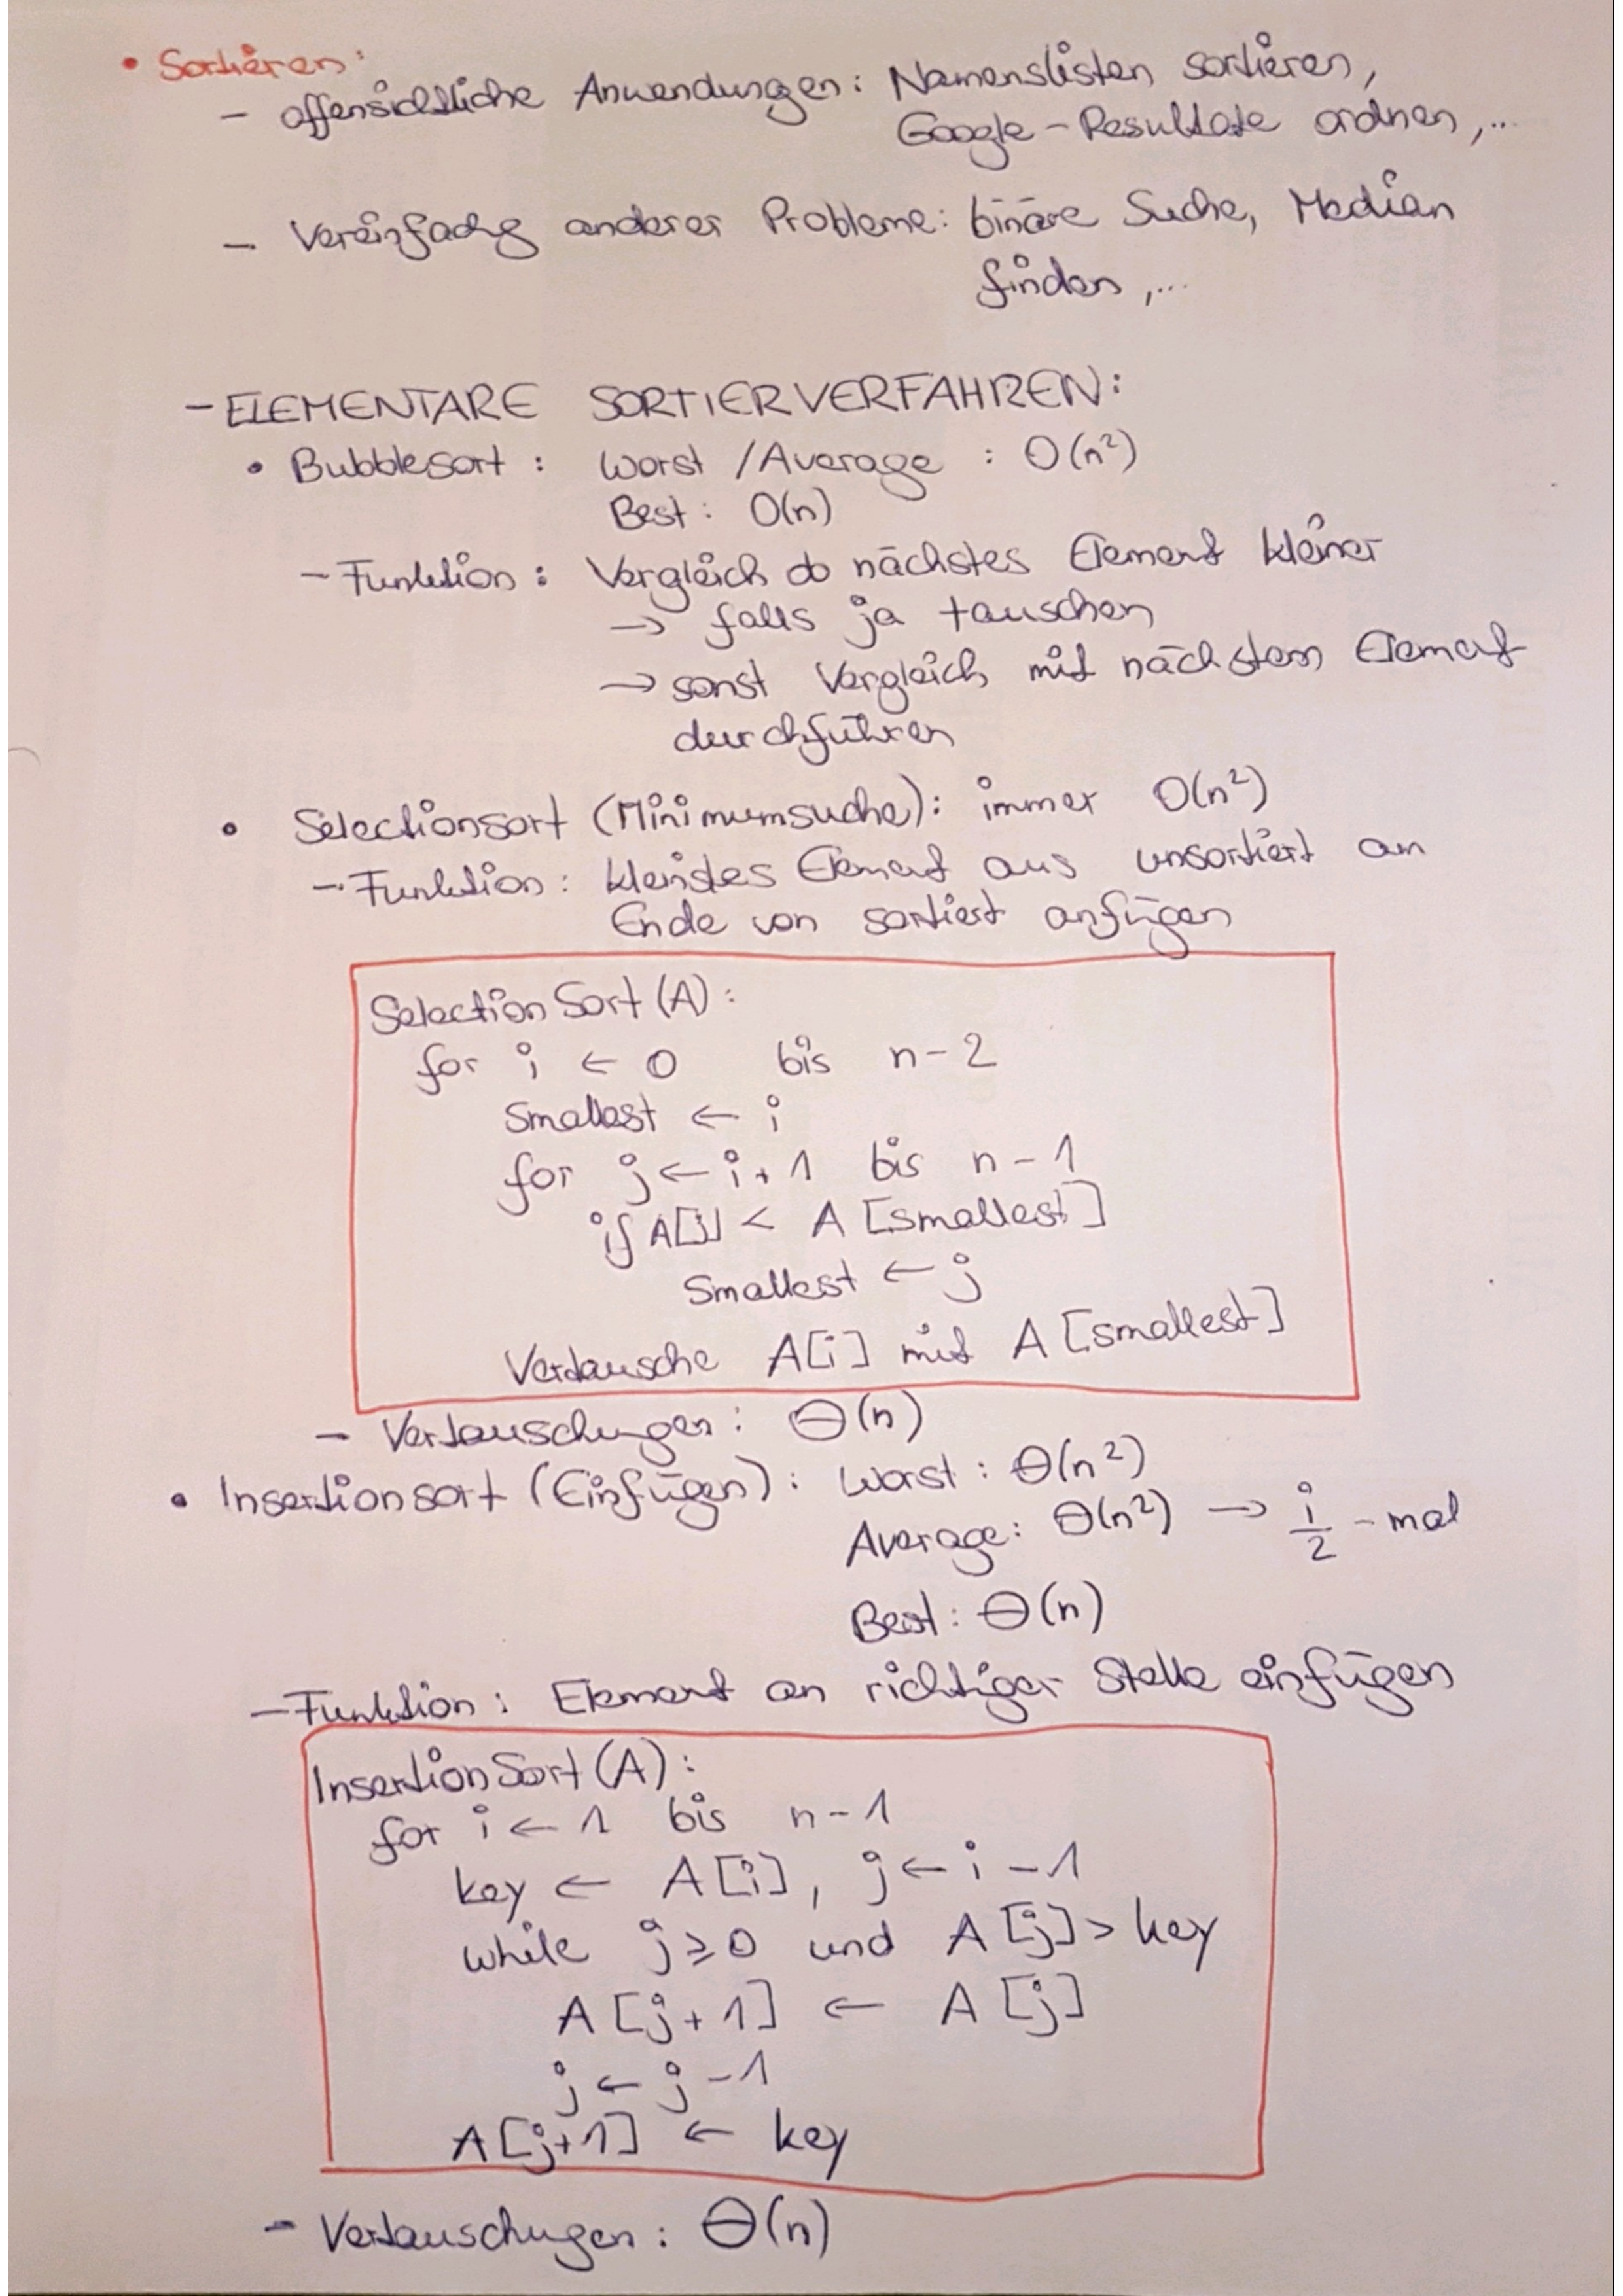 • Sortieren:
- offensichtliche Anwendungen: Namenslisten sortieren,
Google-Resultate ordnen,...
- Vereinfachg anderer Probleme: binäre Suche, Median
finden,...
- ELEMENTARE SORTIERVERFAHREN:
• Bubblesort: Worst / Average : O(n²)
Best: O(n)
- Funktion: Vergleich ob nächstes Element kleiner
→ falls ja tauschen
→ sonst Vergleich mit nächstem Element
durchführen
• Selectionsort (Minimumsuche): immer O(n²)
- Funktion: kleinstes Element aus unsortiert an
Ende von sortiert anfügen
Selection Sort (A):
for i ← 0 bis n-2
smallest ← i
for j ← i+1 bis n-1
if A[j] < A[smallest]
smallest ← j
Vertausche A[i] mit A[smallest]
- Vertauschungen: Θ(n)
• Insertionsort (Einfügen): Worst: Θ(n²)
Average: Θ(n²) → i/2 -mal
Best: Θ(n)
- Funktion: Element an richtiger Stelle einfügen
Insertion Sort (A):
for i ← 1 bis n-1
key ← A[i], j ← i-1
while j ≥ 0 und A[j] > key
A[j+1] ← A[j]
j ← j-1
A[j+1] ← key
- Vertauschugen: Θ(n)